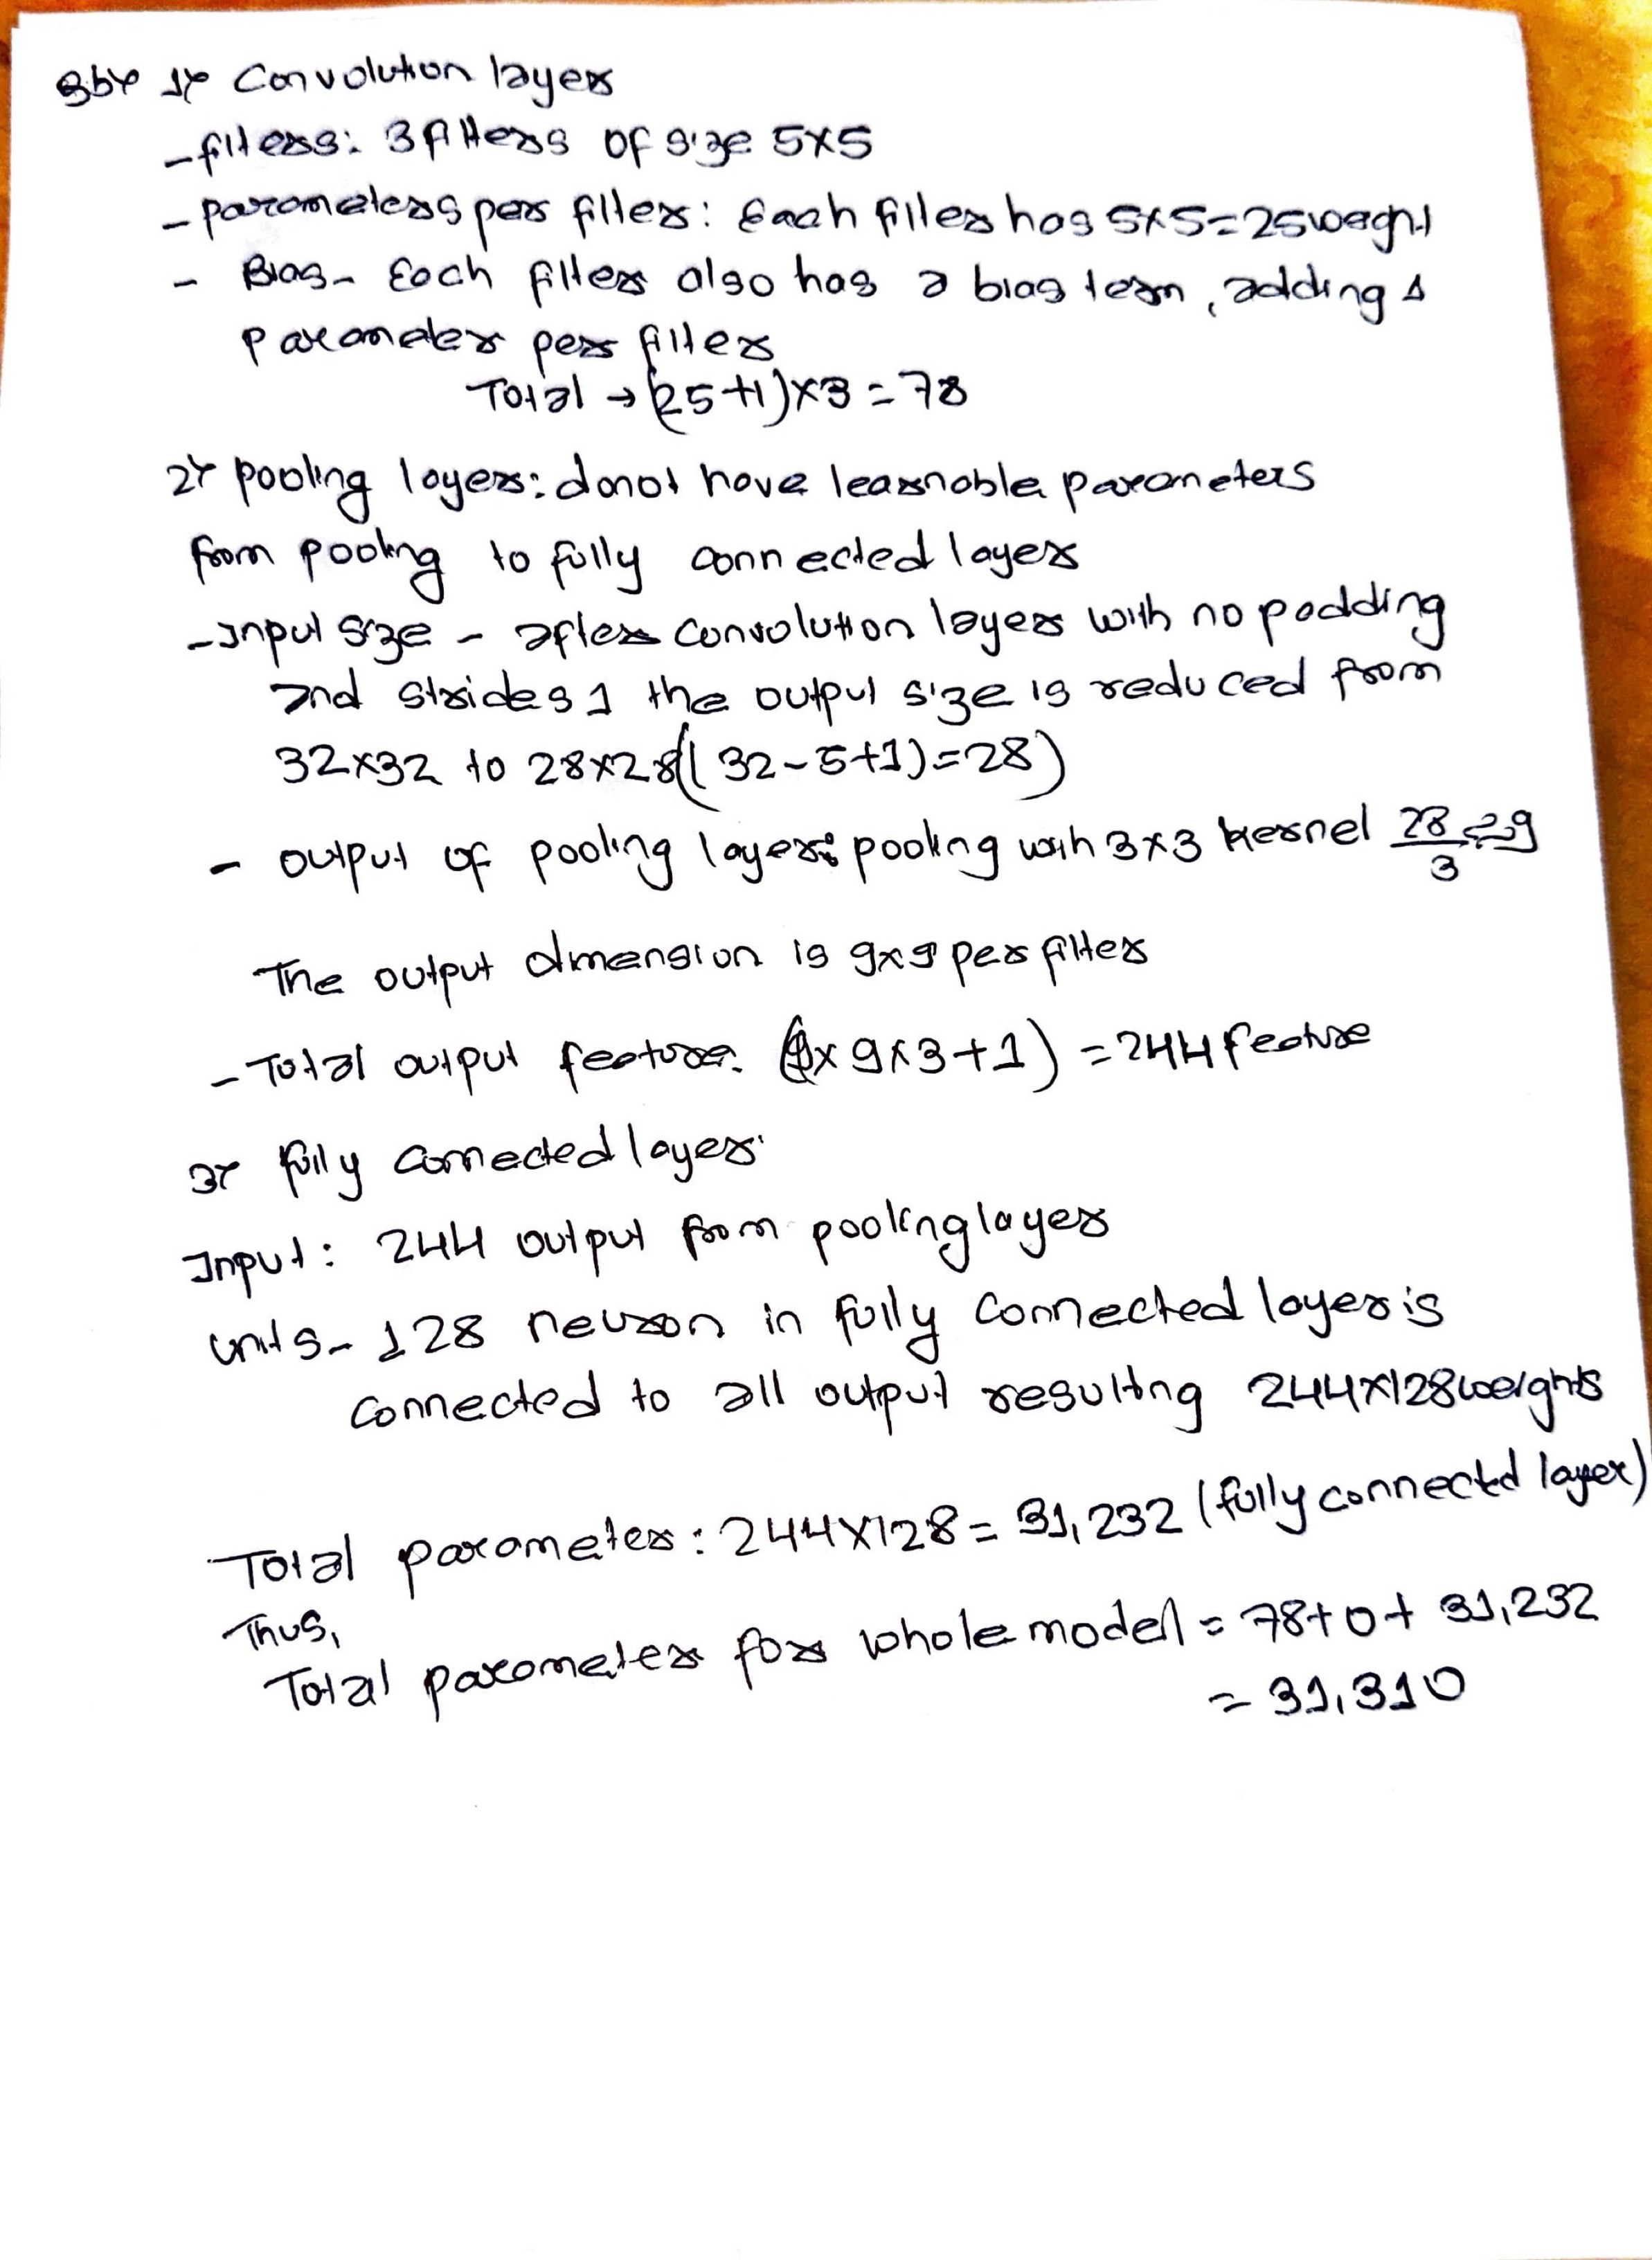 3b) 1) Convolution layer
- filters: 3 filters of size 5x5
- parameters per filter: Each filter has 5x5=25 weight
- Bias - Each filter also has a bias term, adding 1
parameter per filter
Total → (25+1)x3=78
2) pooling layer: donot have learnable parameters
from pooling to fully connected layer
- Input size - after convolution layer with no padding
and strides 1 the output size is reduced from
32x32 to 28x28((32-5+1)=28)
- output of pooling layer: pooling with 3x3 kernel 28/3 ≈ 9
The output dimension is 9x9 per filter
- Total output feature. (9x9x3+1) = 244 feature
3) fully connected layer.
Input: 244 output from pooling layer
units - 128 neuron in fully connected layer is
connected to all output resulting 244x128 weights
Total parameter: 244x128 = 31,232 (fully connected layer)
Thus,
Total parameter for whole model = 78+0+31,232
= 31,310